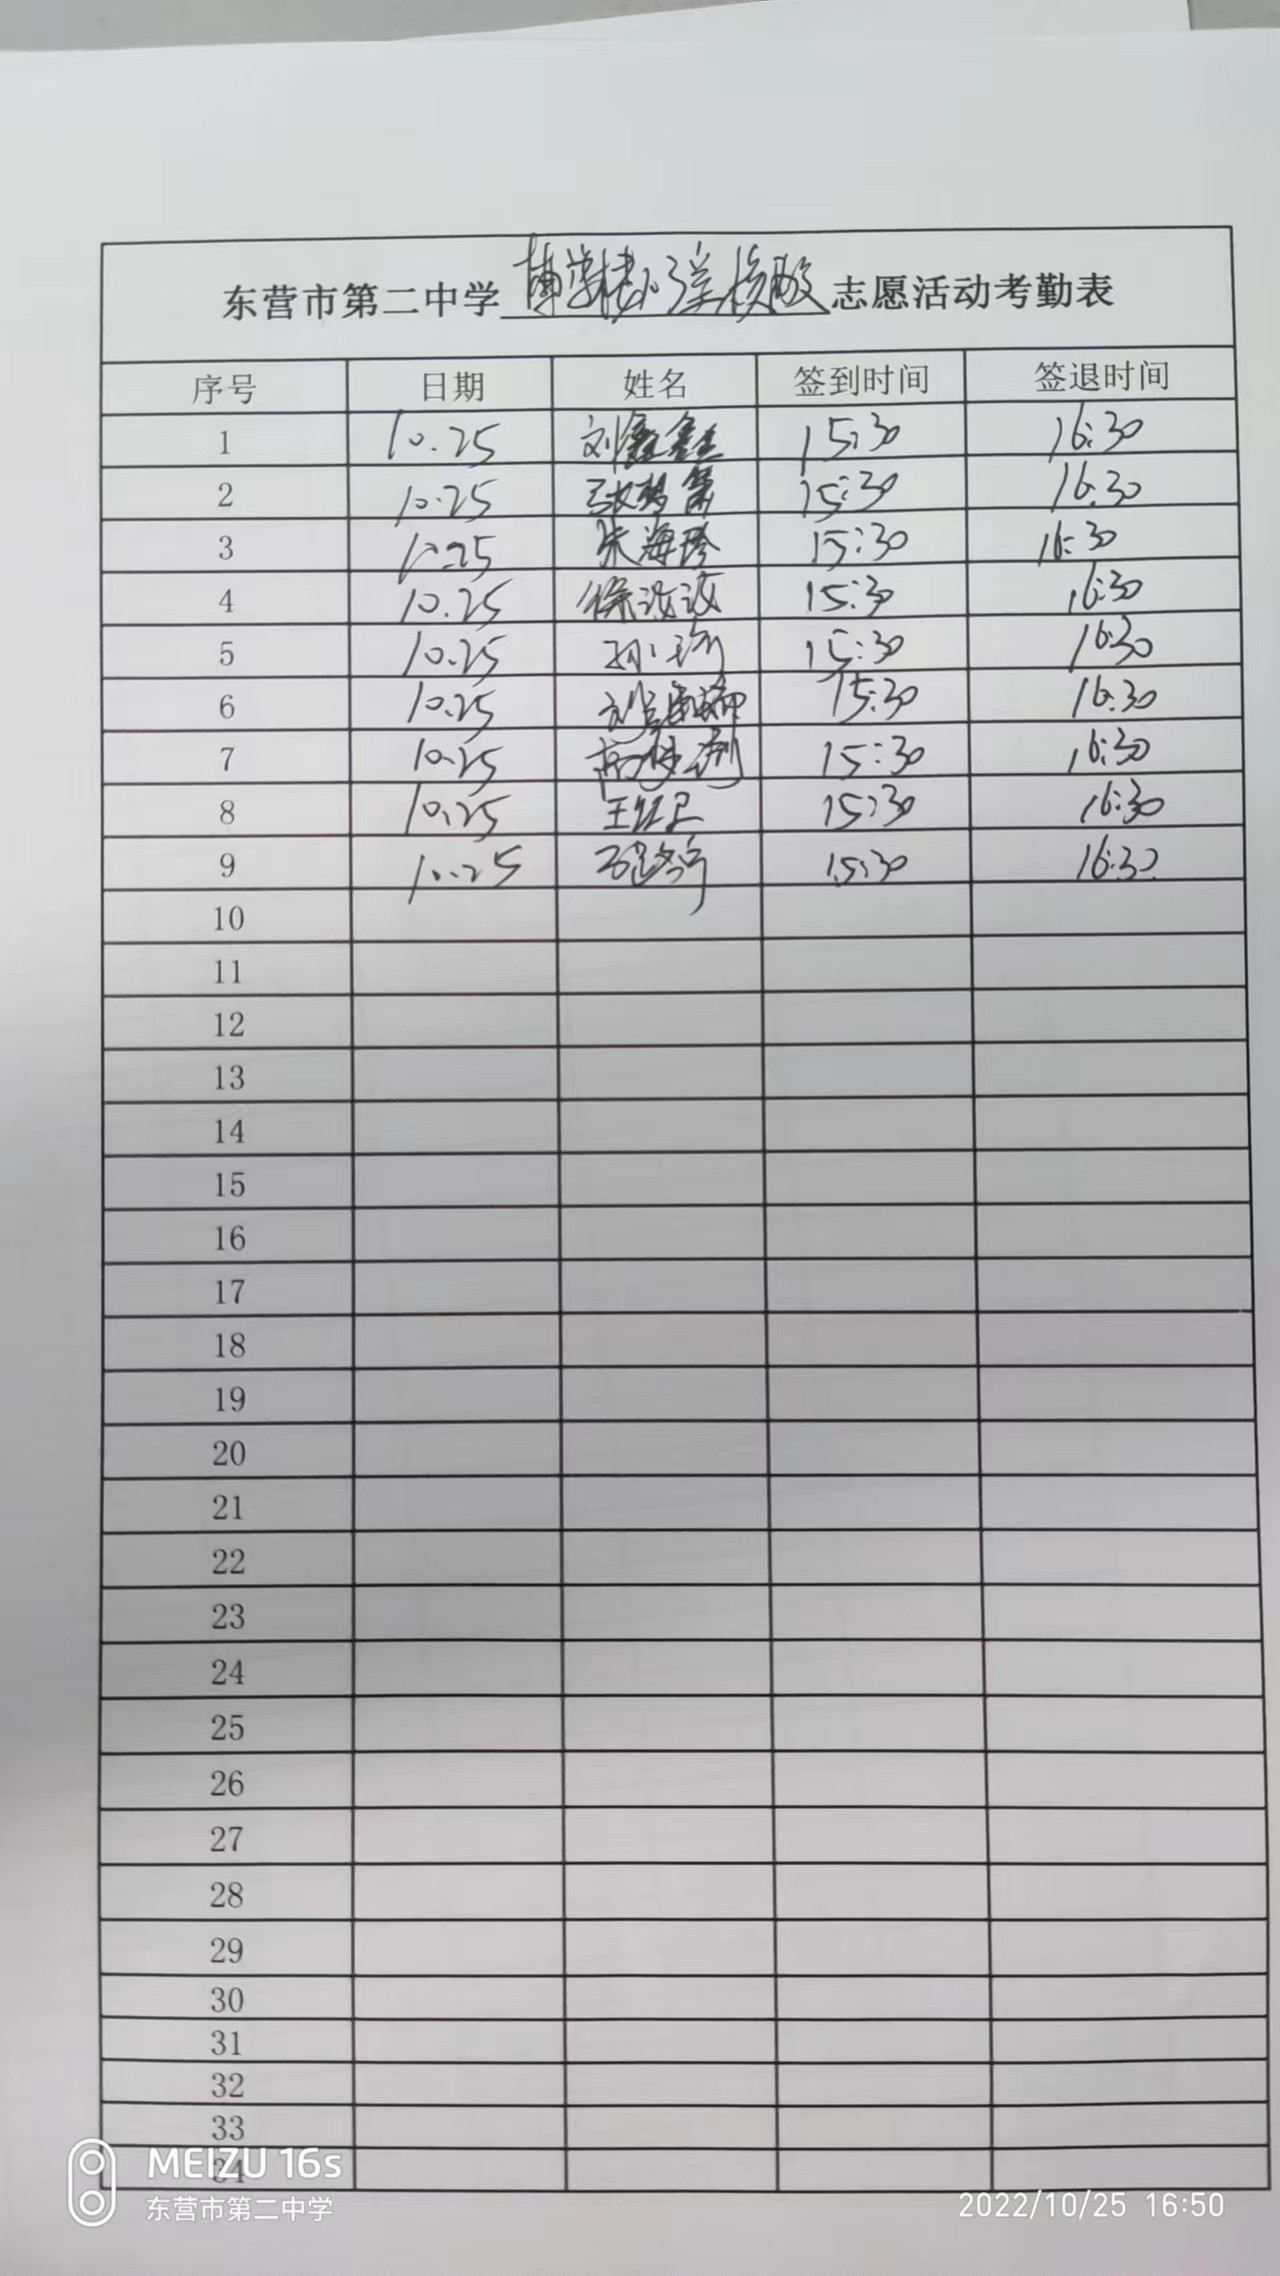 东营市第二中学 博学楼小子单核酸 志愿活动考勤表
序号 日期 姓名 签到时间 签退时间
1 10.25 刘鑫鑫 15:30 16:30
2 10.25 张梦 15:30 16.30
3 10.25 朱海玲 15:30 16:30
4 10.25 徐汝汝 15:30 16:30
5 10.25 孙琦 15:30 16:30
6 10.25 15:30 16:30
7 10.25 高 15:30 16:30
8 10.25 王红卫 15:30 16:30
9 10.25 15:30 16:30
10
11
12
13
14
15
16
17
18
19
20
21
22
23
24
25
26
27
28
29
30
31
32
33
34
MEIZU 16s
东营市第二中学
2022/10/25 16:50